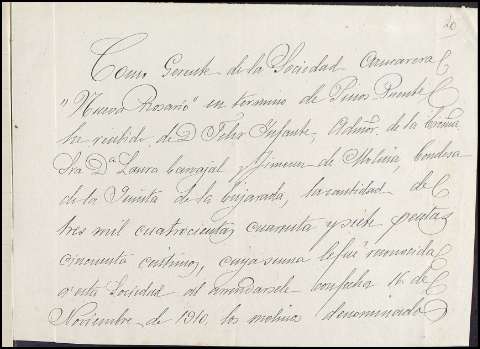 20
Como Gerente de la Sociedad Azucarera
"Nueva Rosario" en término de Pinos-Puente
he recibido de D. Felix Infante, Admor. de la Excma
Sra Dª Laura Carvajal y Jimenez de Molina, Condesa
de la Quinta de la Enjarada, la cantidad de
tres mil cuatrocientas cuarenta y siete pesetas
cincuenta centimos, cuya suma le fué reconocida
a esta Sociedad al arrendarsele con fecha 16 de
Noviembre de 1910 los molinos denominados